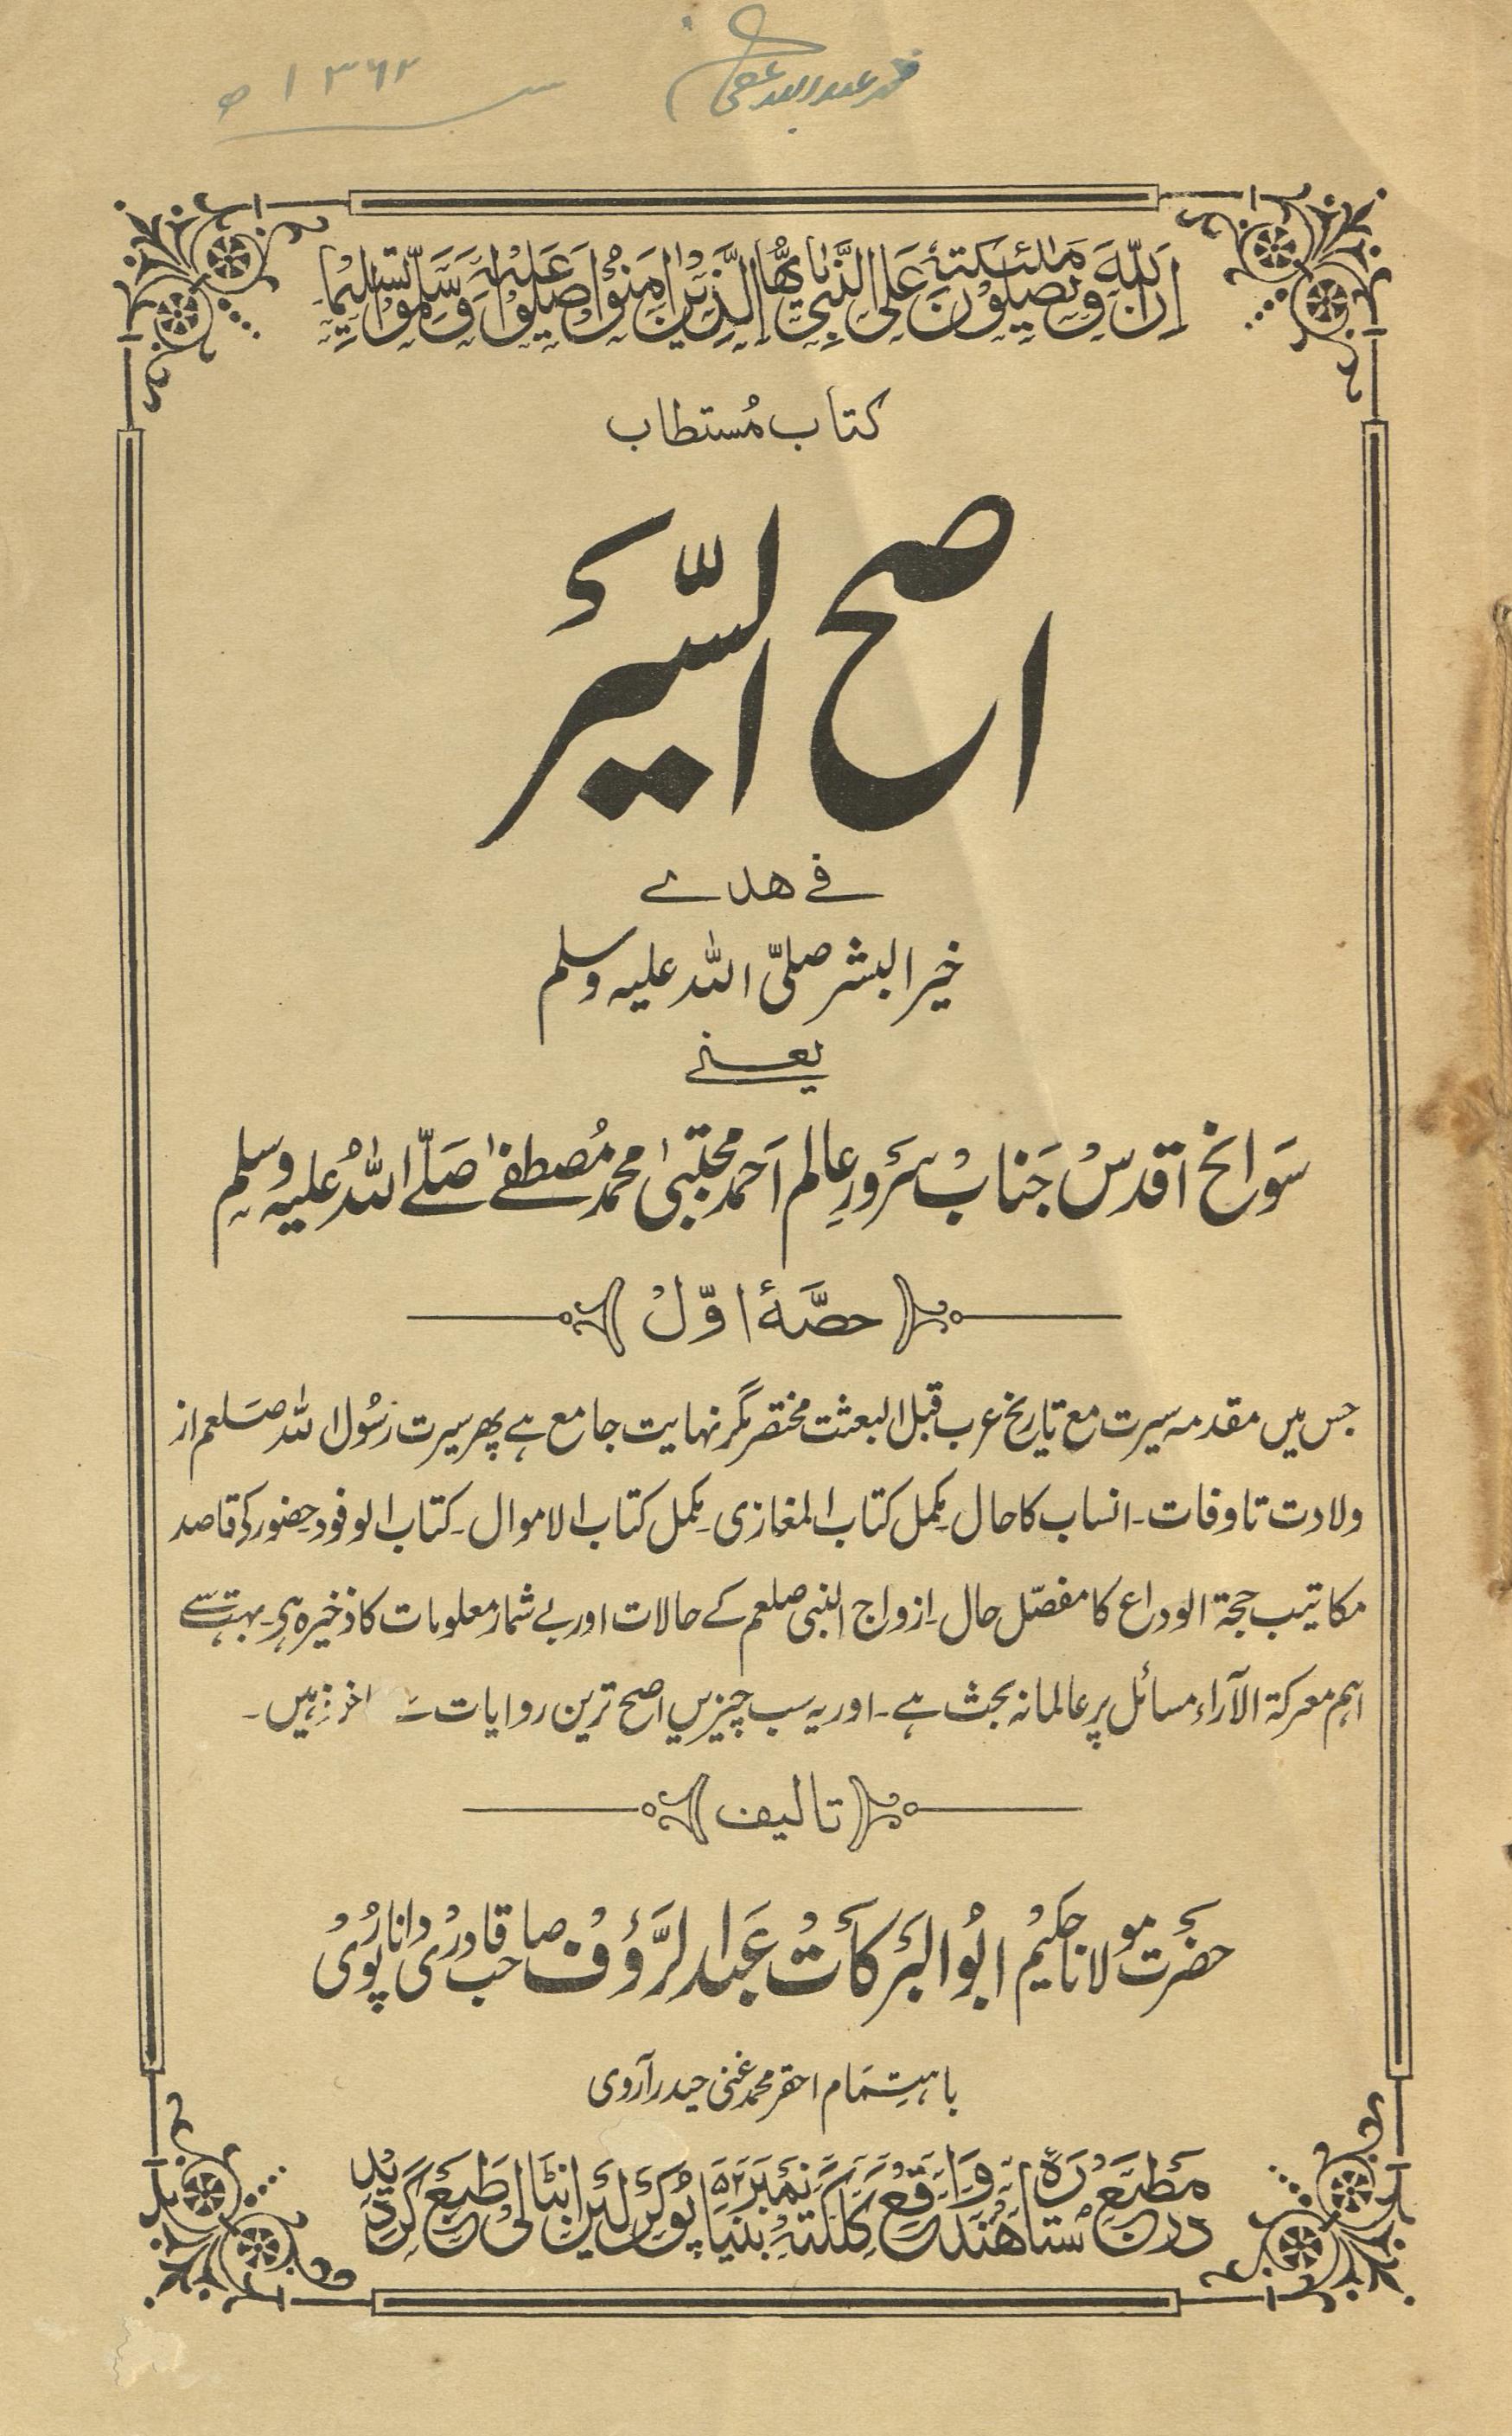 محمد عبد الله عفی
سنہ ۱۳۶۲ ھ
اِنَّ اللّٰهَ وَمَلٰئِكَتَهٗ يُصَلُّوْنَ عَلَى النَّبِيِّ يٰاَيُّهَا الَّذِيْنَ اٰمَنُوْا صَلُّوْا عَلَيْهِ وَسَلِّمُوْا تَسْلِيْمًا
کتاب مُستطاب
اصح السِّیَرْ
فے ھدے
خیر البشر صلّی اللہ علیہ وسلم
یعنے
سَوانح اَقدسْ جَنابْ سَرْورِ عالم اَحمد مجتبیٰ محمد مُصطفےٰ صَلّے اللہُ علیہ وسلم
حصَّۂ اوّلْ
جس میں مقدمہ سیرت مع تاریخ عرب قبل البعثت مختصر مگر نہایت جامع ہے پھر سیرت رسُول اللہ صلعم از
ولادت تا وفات۔ انساب کا حال۔ مکمل کتاب المغازی۔ مکمل کتاب الاموال۔ کتاب الوفود حضور کی قاصد
مکاتیب حجۃ الوداع کا مفصّل حال۔ ازواج النبی صلعم کے حالات اور بے شمار معلومات کا ذخیرہ ہی۔ بہت سے
اہم معرکۃ الآراء مسائل پر عالمانہ بحث ہے۔ اور یہ سب چیزیں اصح ترین روایات سے اخوذ ہیں۔
تالیف
حضرت مولانا حکیم ابُو البَرَکاَتْ عَبدالرَّؤفْ صاحب قادرْی دانا پُوْری
باہتِمَام احقر محمد غنی حیدر آروی
در مَطبَعْ ستارہٴ ہند واقع کلکتہ نمبر ۵۲ بنیا پوکر لین انٹالی طبع گردید